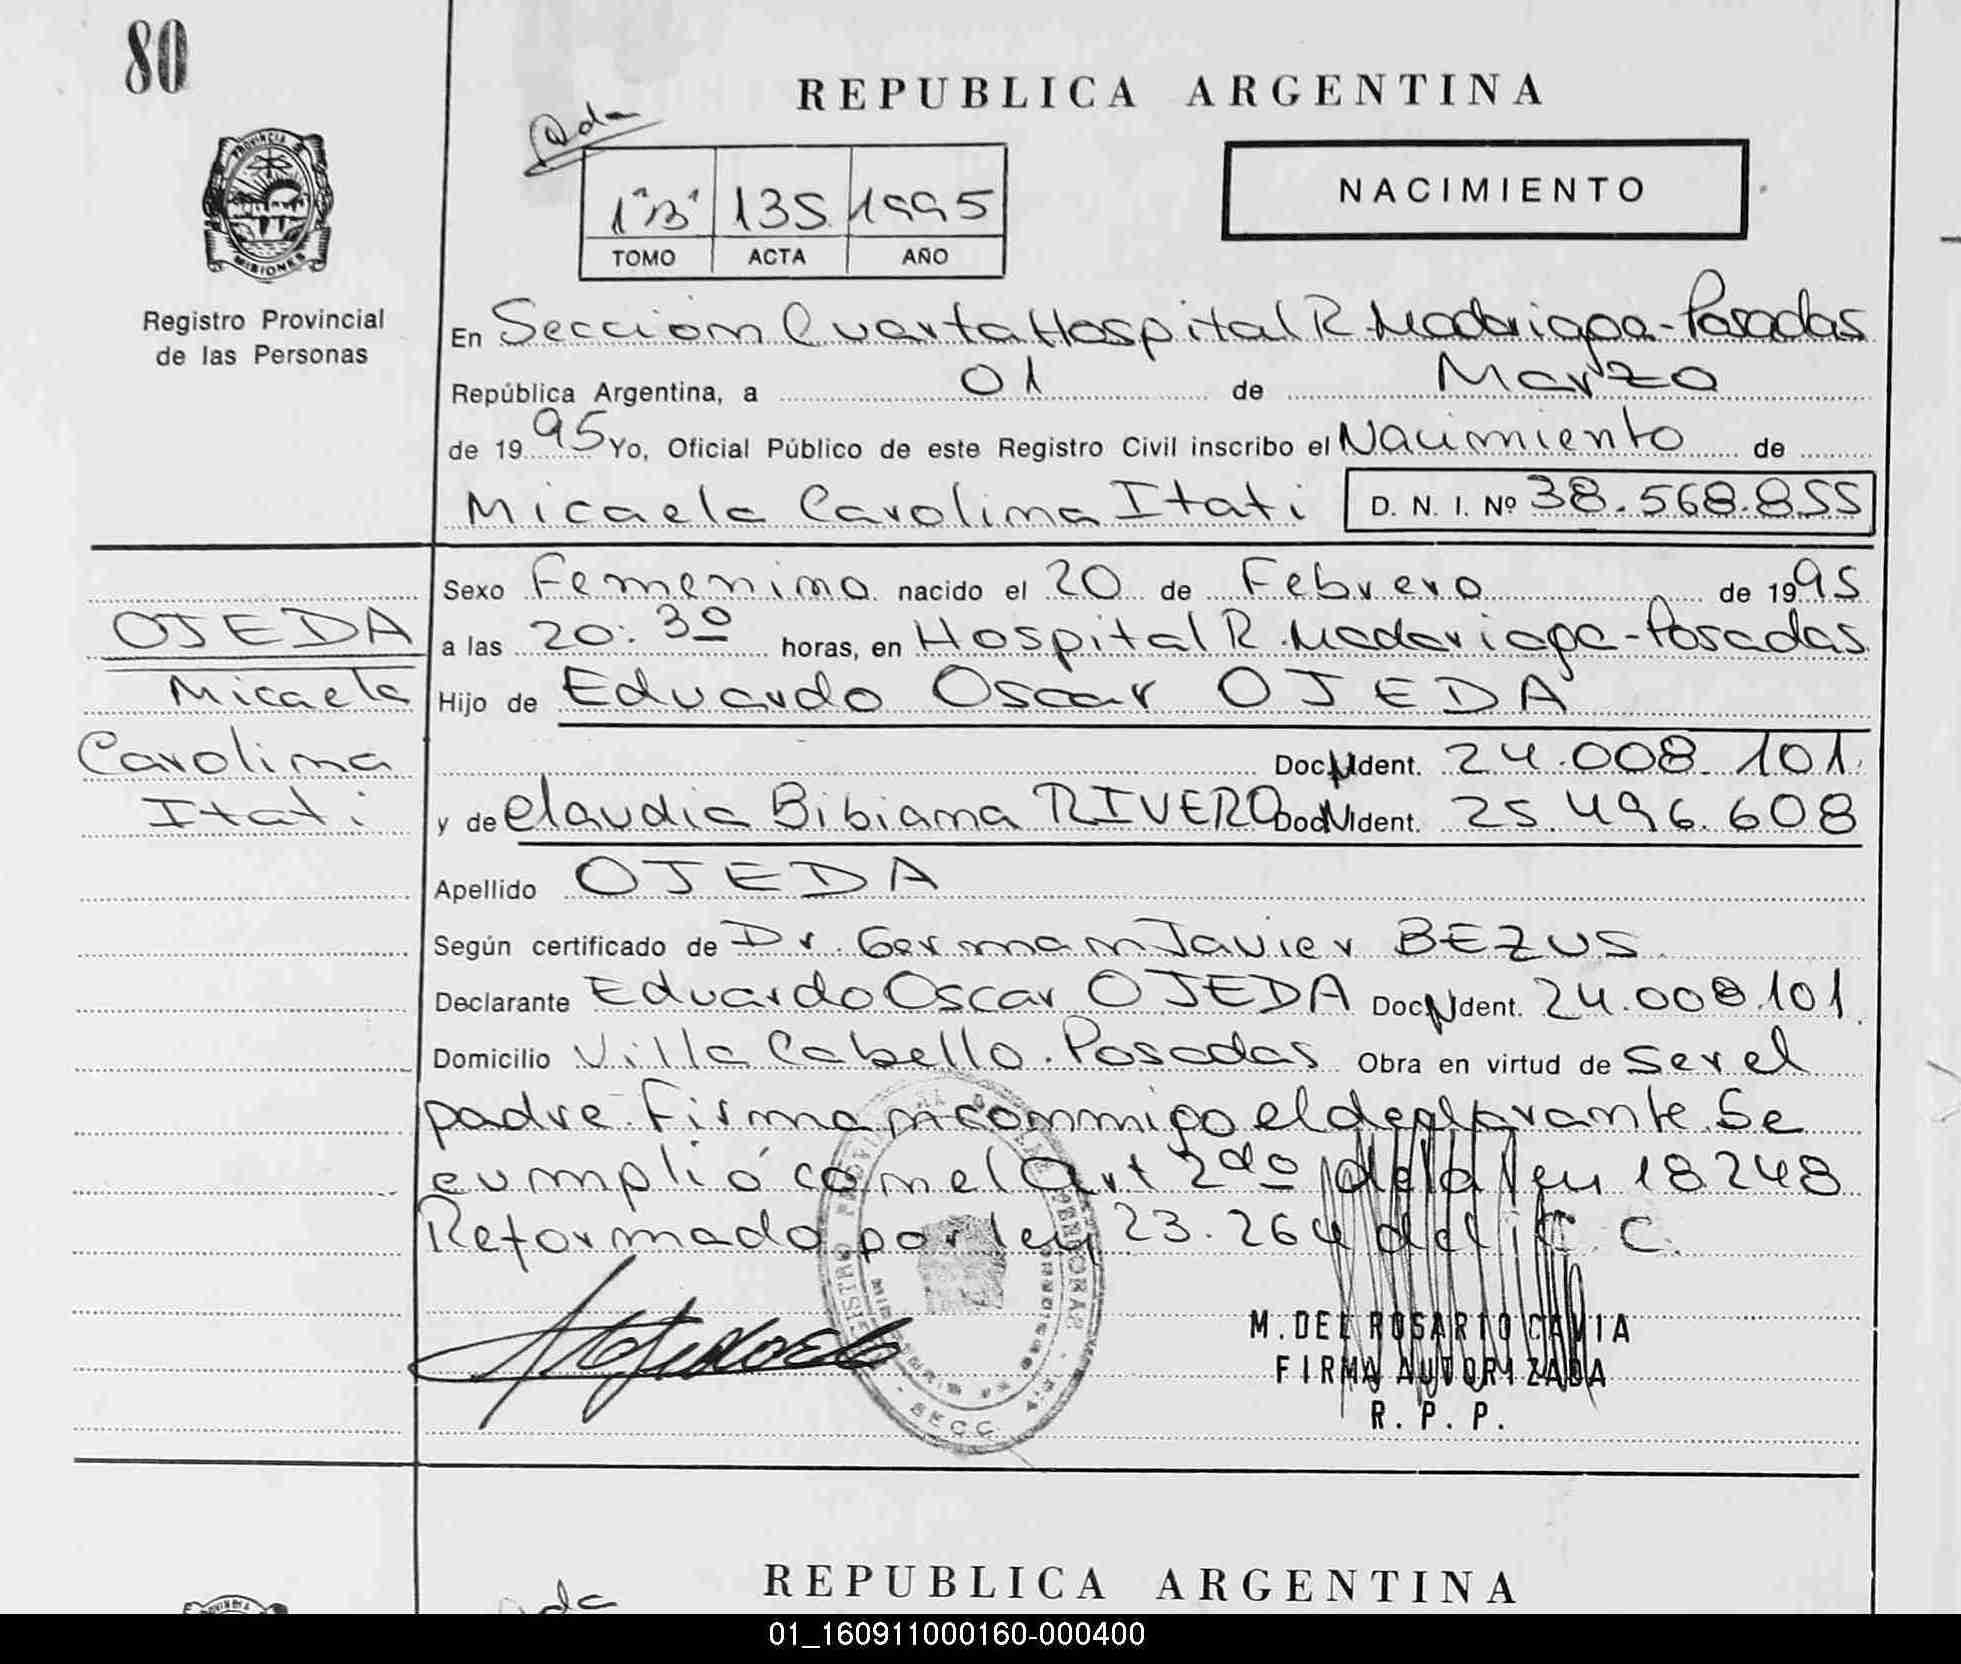 80
REPUBLICA ARGENTINA
PROVINCIA
MISIONES
Registro Provincial
de las Personas
1ª "B" 135 1995
TOMO ACTA AÑO
NACIMIENTO
En Sección Cuarta Hospital R. Madariaga - Posadas
República Argentina, a 01 de Marzo
de 1995 Yo, Oficial Público de este Registro Civil inscribo el Nacimiento de
Micaela Carolina Itati D. N. I. Nº 38.568.855
OJEDA
Micaela
Carolina
Itati
Sexo Femenino nacido el 20 de Febrero de 1995
a las 20:30 horas, en Hospital R. Madariaga - Posadas
Hijo de Eduardo Oscar OJEDA
Doc. Ident. 24.008.101
y de Claudia Bibiana RIVERO Doc. Ident. 25.496.608
Apellido OJEDA
Según certificado de Dr. German Javier BEZUS
Declarante Eduardo Oscar OJEDA Doc. Ident. 24.008.101
Domicilio Villa Cabello. Posadas Obra en virtud de ser el
padre. Firma conmigo el declarante. Se
cumplió con el Art 2do de la ley 18248
Reformado por ley 23.264 del C. C.
M. DEL ROSARIO CAVIA
FIRMA AUTORIZADA
R. P. P.
REPUBLICA ARGENTINA
01_160911000160-000400